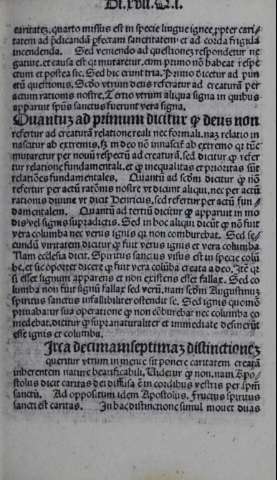 Di.XVII. Q.I.
caritatez, quarto missus est in specie lingue ignee, ꝓpter cari-
tatem ad p̃dicandã pfectam sanctitatem et ad corda frigida
incendenda. Sed veniendo ad questionez respondetur ne
gatiue. et causa est qꝛ mutaretur, cum primo nõ habeat respe
ctum et postea sic. Sed hic erunt tria. Primo dicetur ad pun
ctũ questionis. Scdo vtrum deus referatur ad creaturã per
actum rationis nostre. Tertio vtrum aliqua signa in quibus
apparuit spũs sanctus fuerunt vera signa.
Quantuz ad primum dicitur ꝙ deus non
refertur ad creaturã relatione reali nec formali. naz relatio in
nascitur ab extremis. sz in deo nõ innascit ab extremo qꝛ tũc
mutaretur per nouũ respectũ ad creaturã. sed dicitur ꝙ refer
tur relatione fundamentali. et ꝙ inequalitas et prioritas sũt
relationes fundamentales. Quantũ ad scdm dicitur ꝙ nõ
refertur per actũ ratiõis nostre vt dicunt aliqui, nec per actũ
rationis diuine vt dicit Henricus, sed refertur per actũ fun
damentalem. Quantũ ad tertiũ dicitur ꝙ apparuit in mo
dis vel signis supradictis. Sed in hoc aliqui dicũt ꝙ nõ fuit
vera columba nec verus ignis qꝛ non comburebat. Sed se-
cundũ veritatem dicitur ꝙ fuit verus ignis et vera columba.
Nam ecclesia dicit. Spiritus sanctus visus est in specie colũ
be, et sic oportet dicere ꝙ fuit vera colũba creata a deo. Itẽ qꝛ
si esset signum apparens et non existens esset fallax. Sed co
lumba non fuit signũ fallax sed verũ, nam scdm Augustinuz
spiritus sanctus infallibiliter ostendit se. Sed ignis quomõ
priuabatur sua operatione ꝙ non cõburebat nec columba co
medebat, dicitur ꝙ supranaturaliter et immediate desinerũt
esse ignis et columba.
Irca decimamseptimaz distinctionez
queritur vtrum in mente sit ponere caritatem creatã
inherentem nature beatificabili. Uidetur ꝙ non, nam Apo-
stolus dicit caritas dei diffusa ẽ in cordibus vestris per spm̃
sanctũ. Ad oppositum idem Apostolus. Fructus spiritus
sancti est caritas. In hac distinctione simul mouet duas